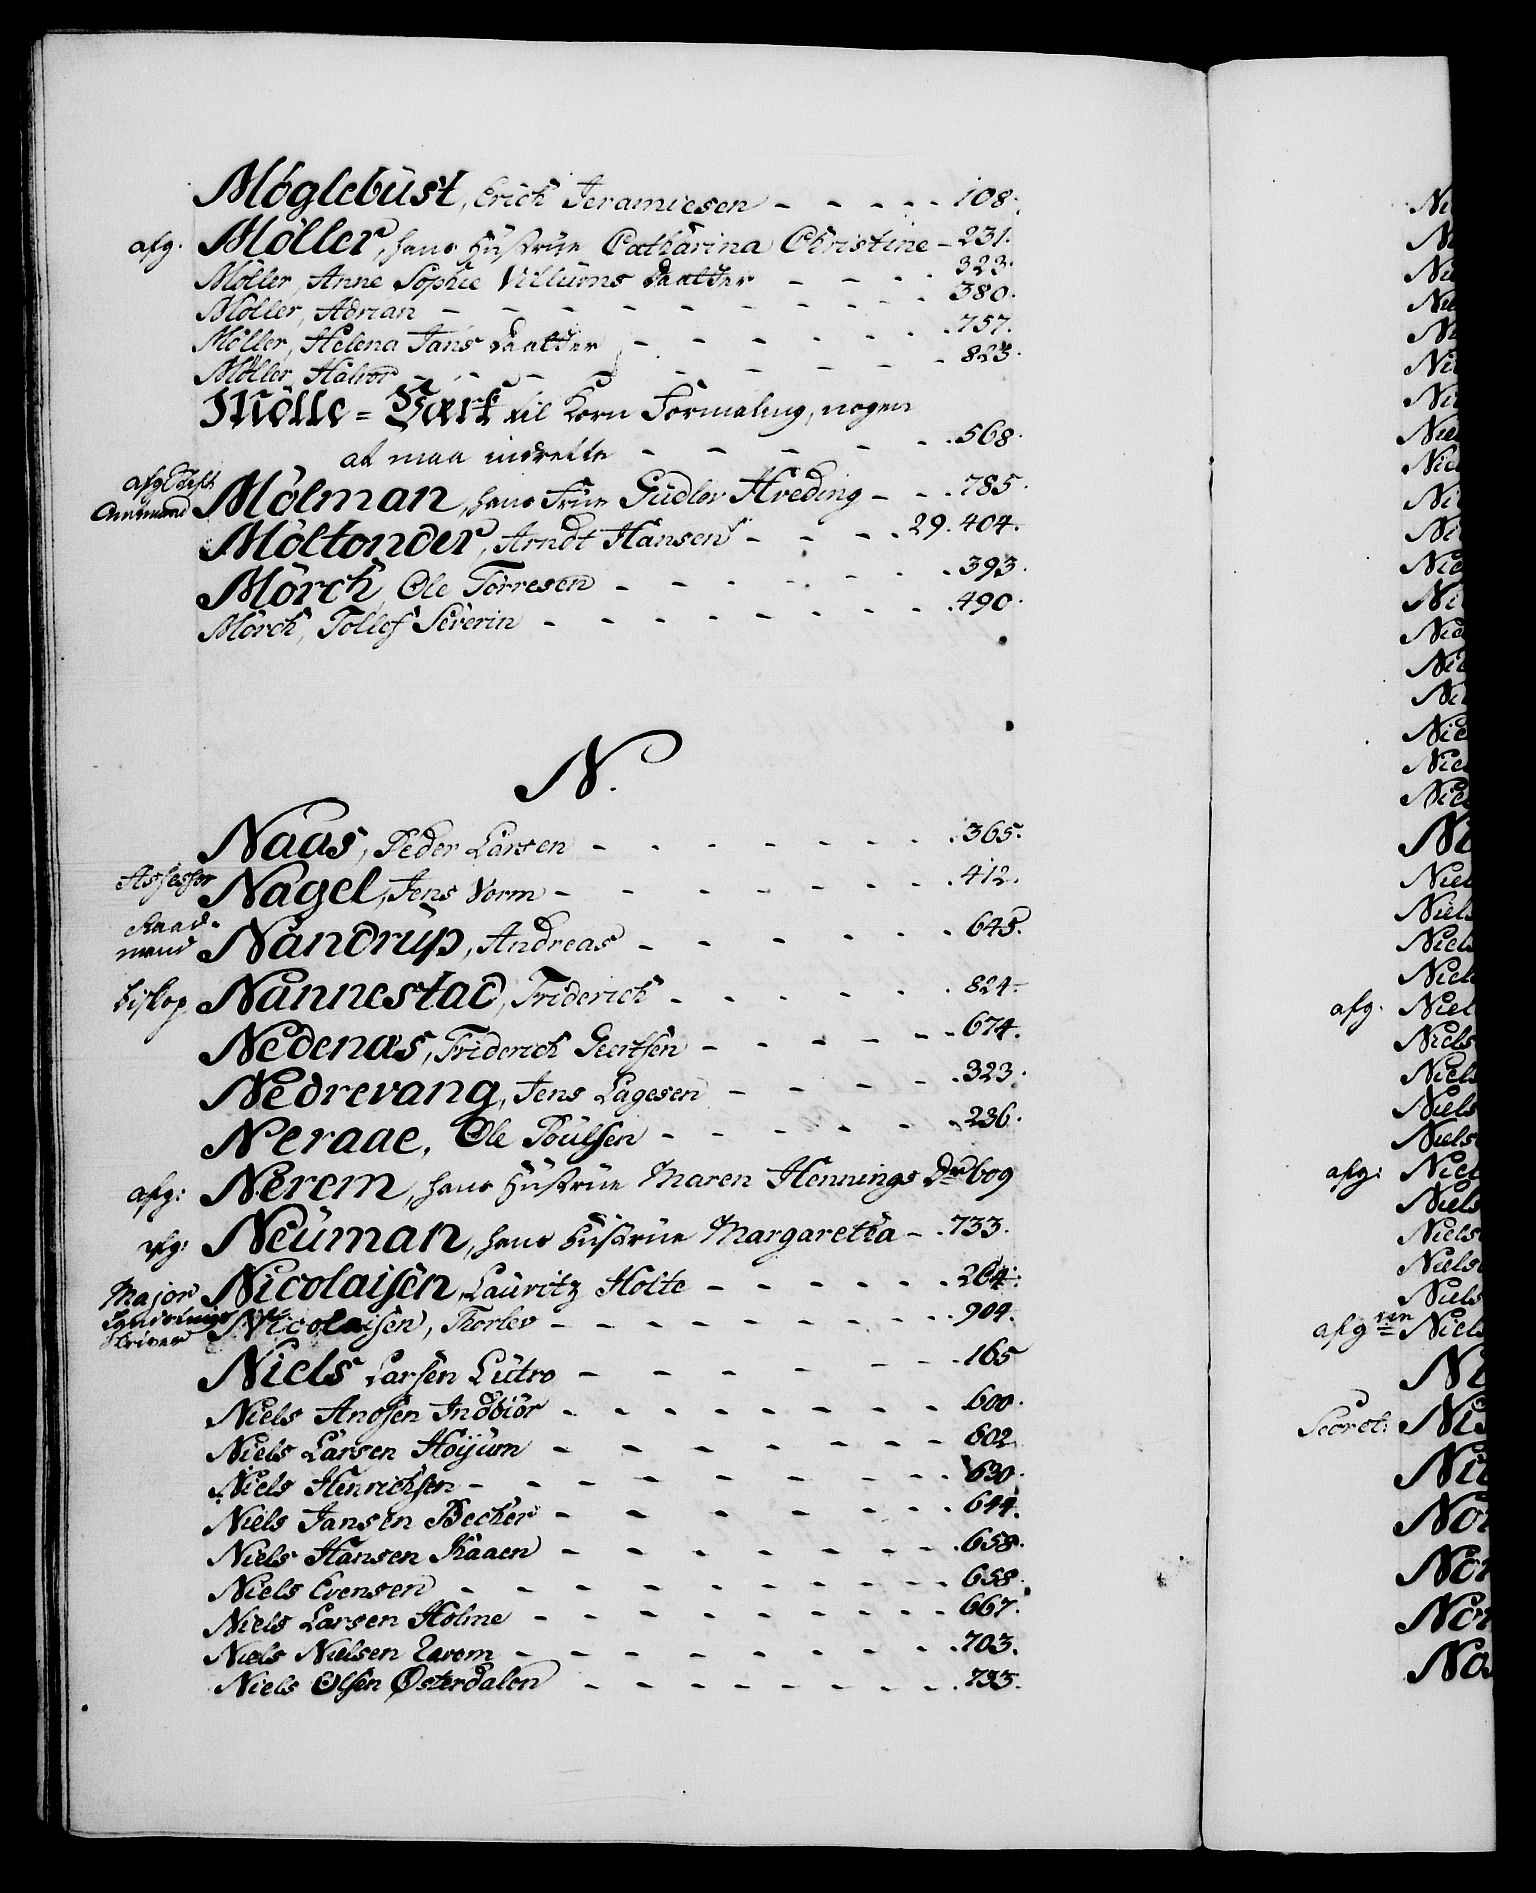 Möglebüst, Erich Jeramiesen - - - - - 108.
afg. Möller, hans Hüstrüe Catharina Christine - 231.
Möller, Anne Sophie Villums Daatter - - - 323.
Möller, Adrian - - - - - - - 380.
Möller, Helena Jans Daatter - - - - - 757.
Möller, Halvor - - - - - - 823.
Mölle = Værk til Korn Formaling, nogen
at maa indrette - - - - - 568.
afg.
Amtmand Mölman, hans Früe Gudlov Hreding - - 785.
Möltonder, Arndt Hansen - - - 29. 404.
Mörch, Ole Torresen - - - - - 393.
Mörch, Tollef Severin - - - - - - 490.
N.
Naas, Peder Larsen - - - - - - 365.
Assessor Nagel, Jens Vorm - - - - - - 412.
Raad-
mand Nandrup, Andreas - - - - - 645.
Biskop Nannestad, Friderich - - - - - 824.
Nedenas, Friderich Geertsen - - - - - 674.
Nedrevang, Jens Lagesen - - - - 323.
Neraae, Ole Poulsen - - - - - 236.
afg: Nerem, hans Hüstrüe Maren Hennings Dr 609
afg: Neüman, hans Hüstrüe Margaretha - 733.
Major Nicolaisen, Lauritz Holte - - - - - 264.
Landstings
Skriver Nicolaisen, Thorlev - - - - - - 904.
Niels Larsen Lütro - - - - - 165
Niels Andsen Indbiör - - - - - - 600.
Niels Larsen Höijum - - - - - - 602.
Niels Henrichsen - - - - - - 630.
Niels Jansen Becker - - - - - - 644.
Niels Hansen Kaaen - - - - - - 658.
Niels Evensen - - - - - - - 658.
Niels Larsen Holme - - - - - - 667.
Niels Nielsen Qvern - - - - - - 703.
Niels Olsen Østerdalen - - - - - - 733.
afg.
afg:
afgren
Secret: